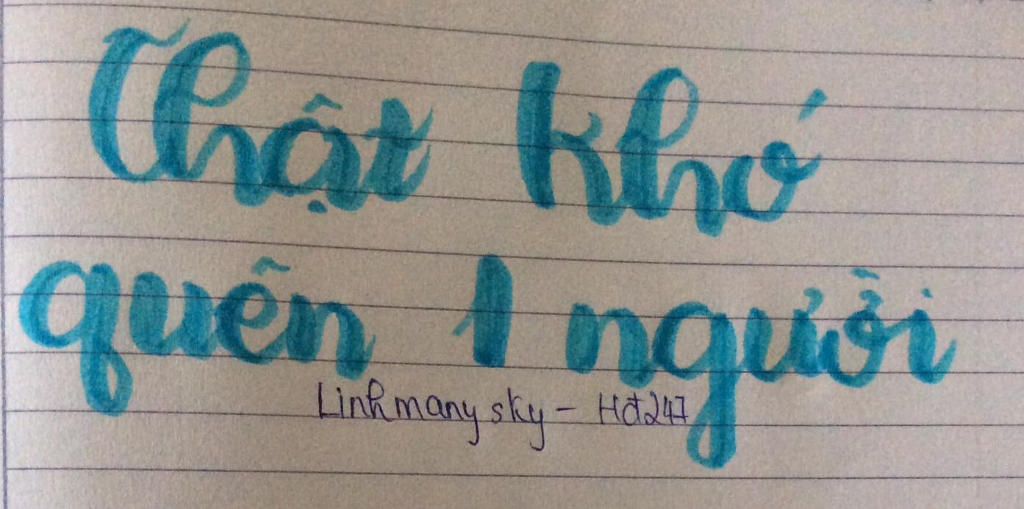 Thật khó
quên 1 người
Linhmany sky - Hđ247